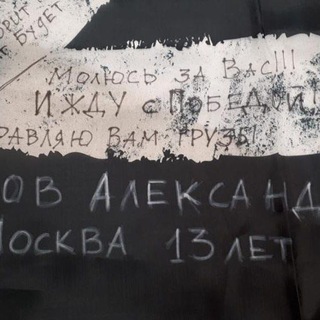 ОРИТ
БУДЕТ
МОЛЮСЬ ЗА ВАС!!!
И ЖДУ С ПОБЕДОЙ!
РАВЛЯЮ ВАМ ГРУЗЫ
ОВ АЛЕКСАНД
МОСКВА 13 ЛЕТ